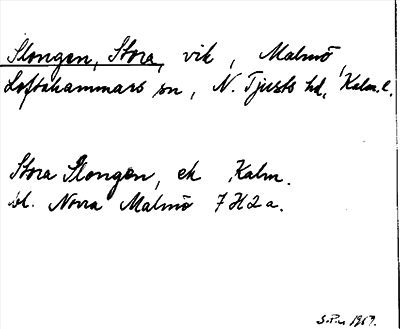 Slongen, Stora, vik, Malmö,
Loftahammars sn, N. Tjusts hd, Kalm. l.
Stora Slongen, ek Kalm.
bl. Norra Malmö 7H2a.
1967.